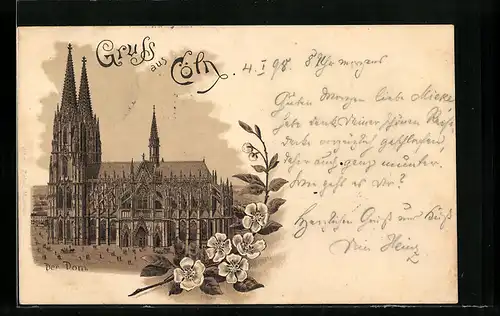 Gruss
aus
Cöln.
4. I 98. 8 Uhr morgens
Guten Morgen liebe Mieke,
habe Dank Deiner schönen
geschlafen,
daher auch ganz munter.
Wie geht es Dir?
Herzlichen Gruß und Kuß
Dein Heinz
Der Dom.